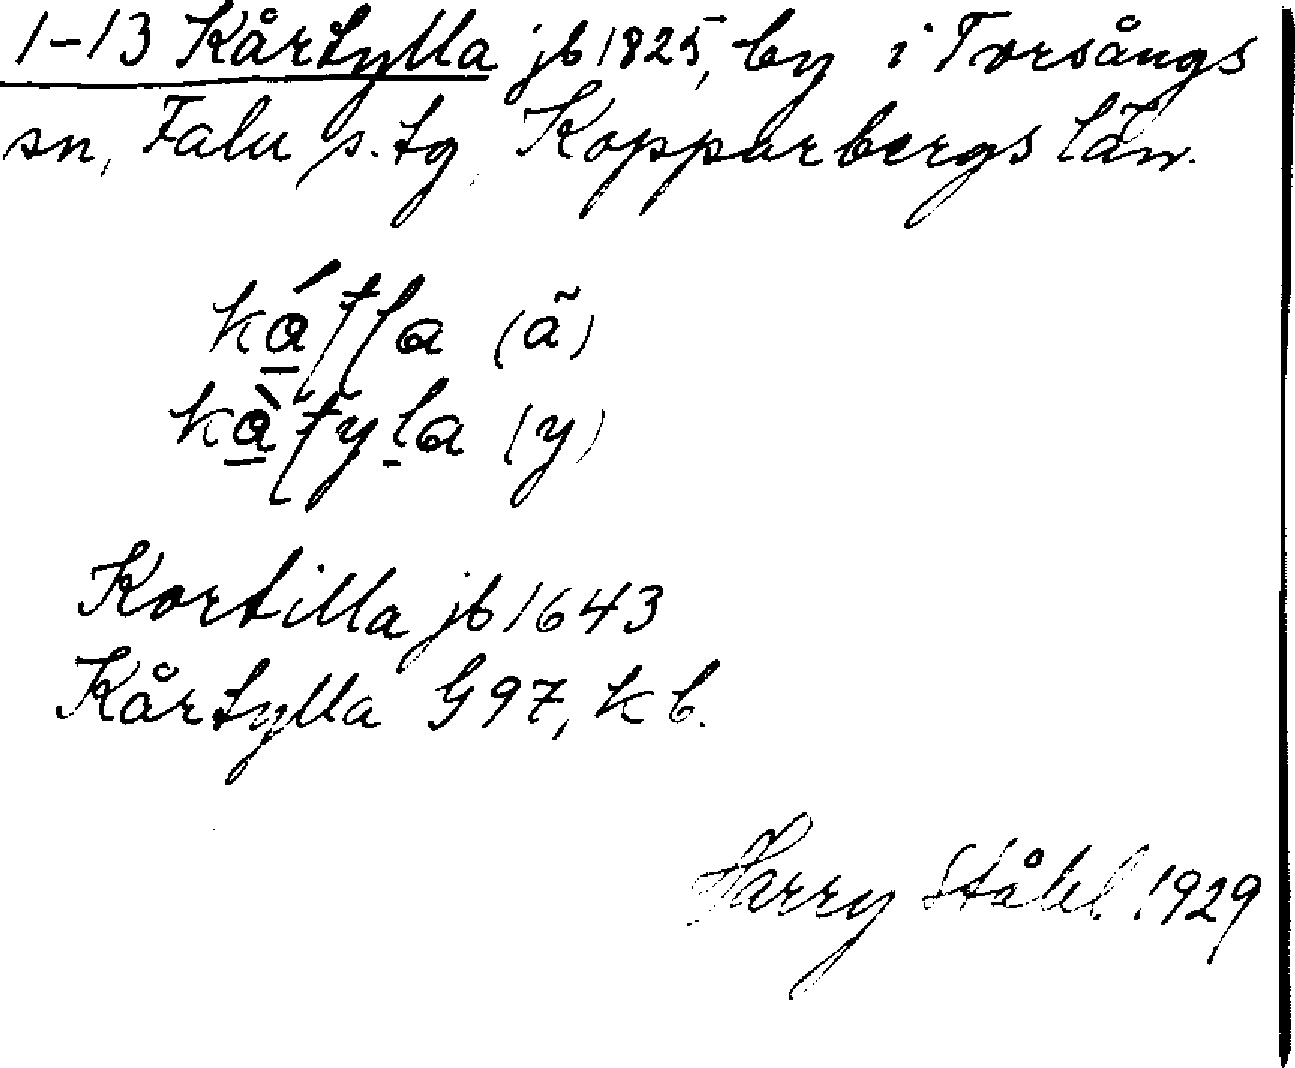 1-13 Kårtylla jb 1825, by i Torsångs
sn, Falu s. tg, Kopparbergs län.
(ã)
(y)
Kortilla jb 1643
Kårtylla G97, kb.
Harry Ståhl 1929